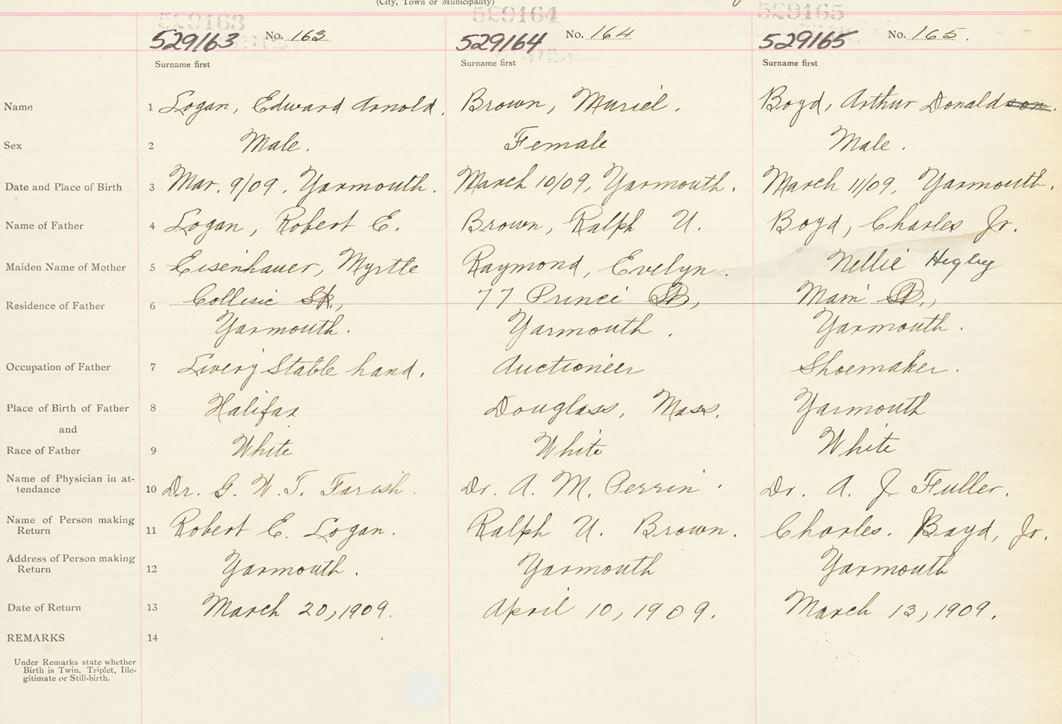 (City, Town or Municipality)
529163 529164 529165
529163 No. 163 529164 No. 164 529165 No. 165.
Surname first Surname first Surname first
Name 1 Logan, Edward Arnold. Brown, Muriel. Boyd, Arthur Donaldson.
Sex 2 Male. Female Male.
Date and Place of Birth 3 Mar. 9/09, Yarmouth. March 10/09, Yarmouth. March 11/09, Yarmouth.
Name of Father 4 Logan, Robert E. Brown, Ralph U. Boyd, Charles Jr.
Maiden Name of Mother 5 Eisenhauer, Myrtle Raymond, Evelyn. Nellie Higby
Residence of Father 6 Collisie St, 77 Prince St, Main St,
Yarmouth. Yarmouth. Yarmouth.
Occupation of Father 7 Livery Stable hand. Auctioneer Shoemaker.
Place of Birth of Father 8 Halifax Douglass, Mass. Yarmouth
and
Race of Father 9 White White White
Name of Physician in at-
tendance 10 Dr. G. W. T. Farish. Dr. A. M. Perrin. Dr. A. J Fuller.
Name of Person making
Return 11 Robert E. Logan. Ralph U. Brown. Charles. Boyd, Jr.
Address of Person making
Return 12 Yarmouth. Yarmouth Yarmouth
Date of Return 13 March 20, 1909. April 10, 1909. March 13, 1909.
REMARKS 14
Under Remarks state whether
Birth is Twin, Triplet, Ille-
gitimate or Still-birth.